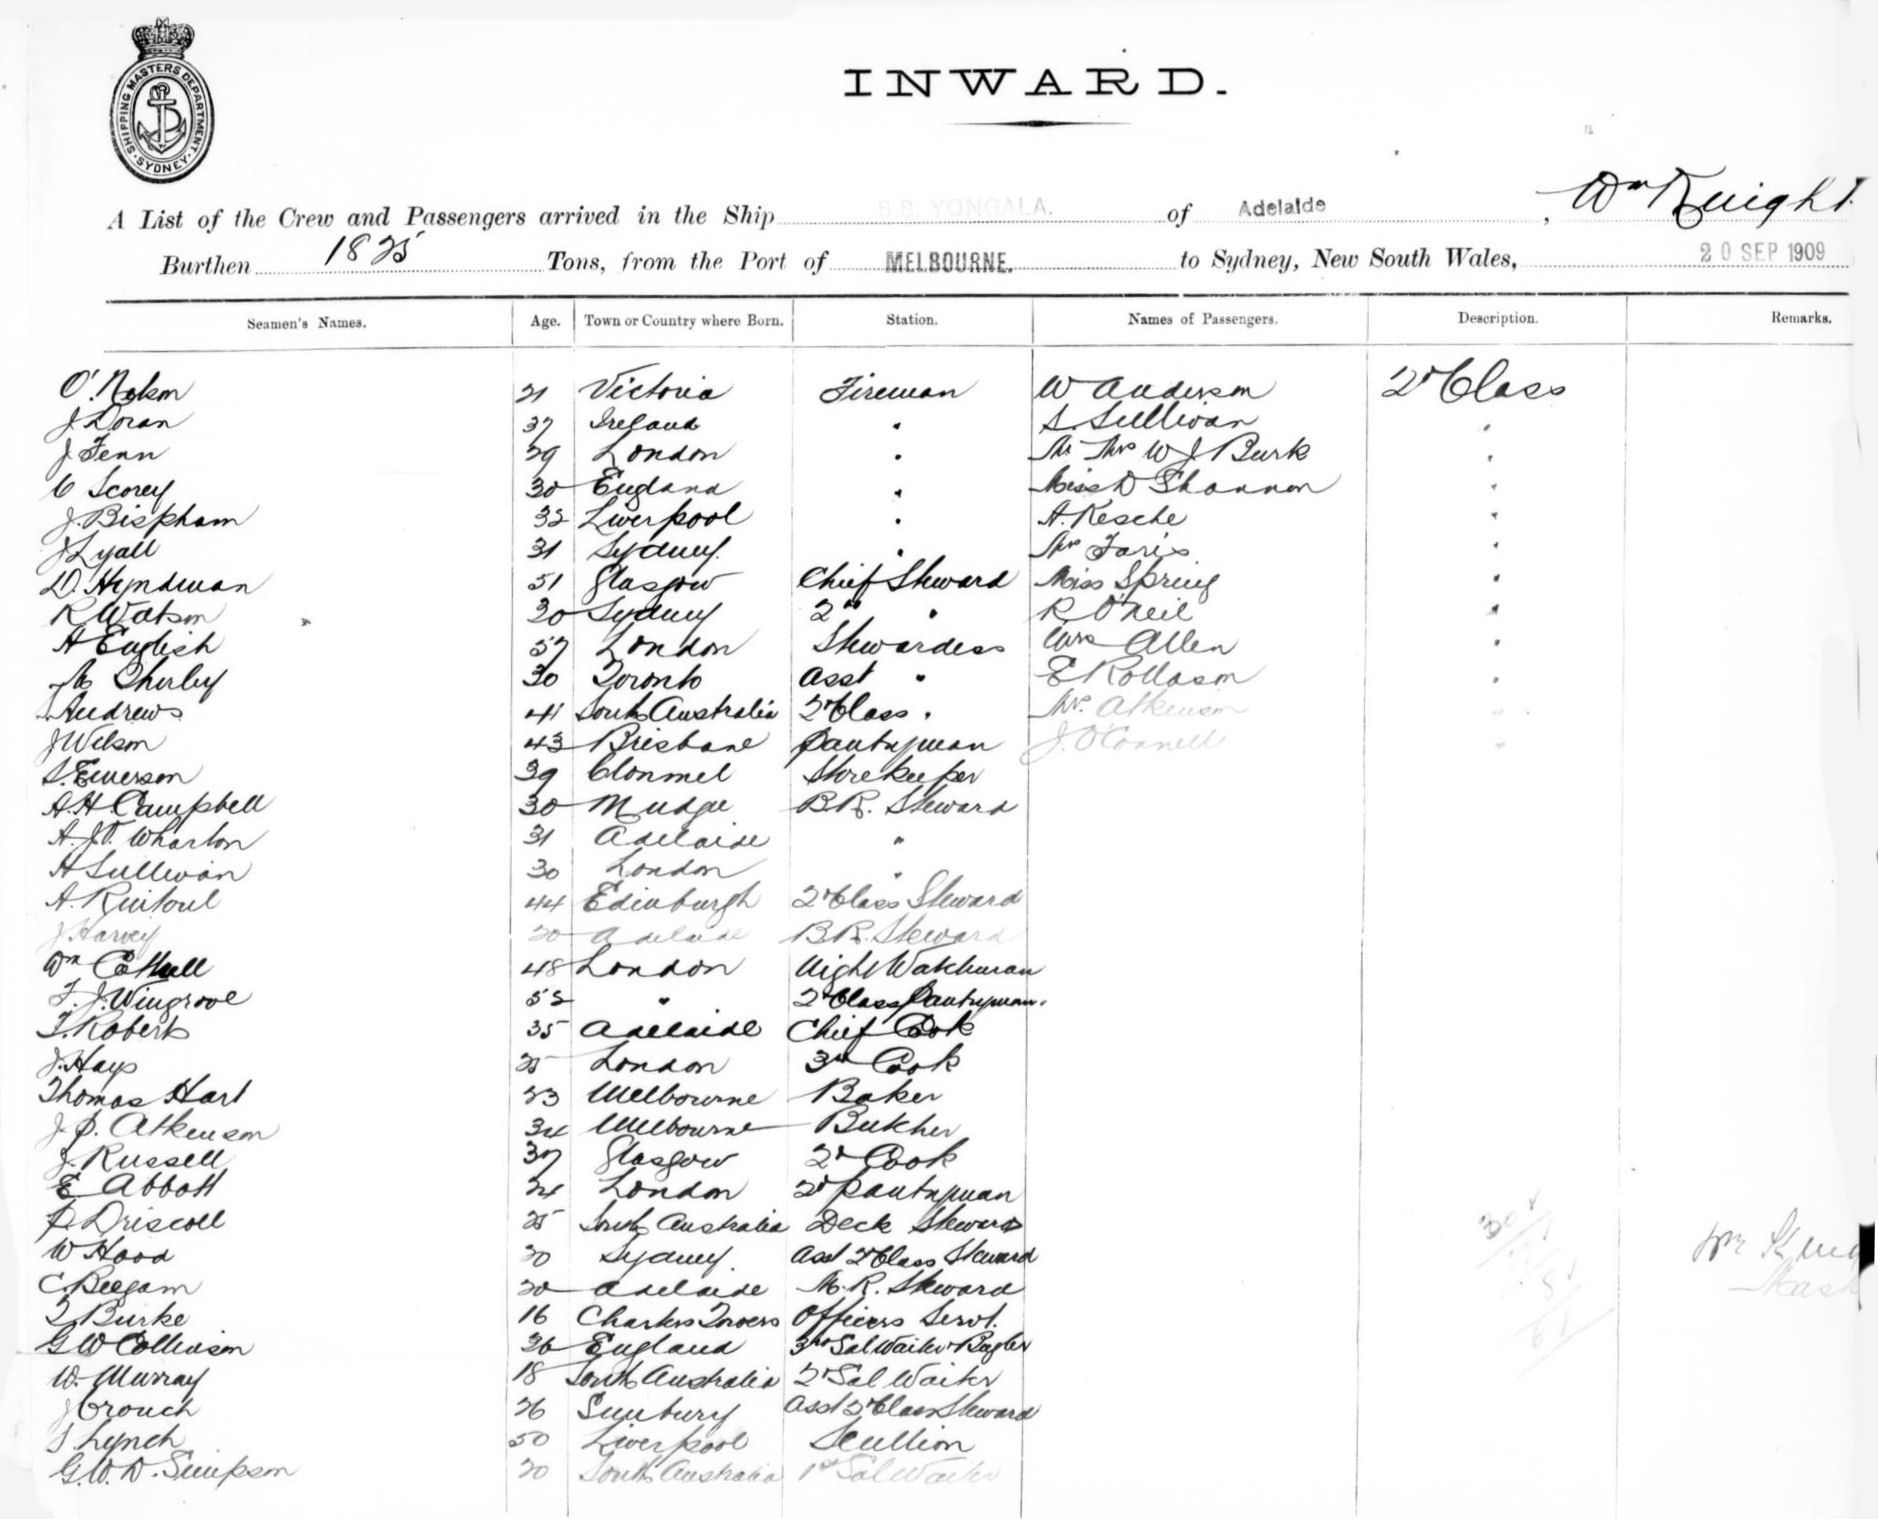 SHIPPING MASTERS DEPARTMENT
SYDNEY
INWARD.
A List of the Crew and Passengers arrived in the Ship S.S. YONGALA. of Adelaide, Wm Knight
Burthen 1825 Tons, from the Port of MELBOURNE. to Sydney, New South Wales, 20 SEP 1909
Seamen's Names. Age. Town or Country where Born. Station. Names of Passengers. Description. Remarks.
O'. Nelson 21 Victoria Fireman W Anderson 2d Class
J Doran 37 Ireland " S. Sullivan "
J Fenn 29 London " Mr Mrs W J Burk "
C Scorey 30 England " Miss D Shannon "
J. Bispham 32 Liverpool " A. Resche "
J Lyall 31 Sydney. " Mrs Faris "
D. Hyndman 51 Glasgow Chief Steward Miss Spring "
R Watson 30 Sydney 2nd " R O'Neil "
A English 57 London Stewardess Mrs Allen "
Shirley 30 Toronto Asst " E Rollason "
Andrews 41 South Australia 2d Class " Mr. Atkinson "
J Wilson 43 Brisbane Pantryman J. O'Connell "
S. Emerson 39 Clonmel Storekeeper
A. H Campbell 30 Mudgee B.R. Steward
A. J. Wharton 31 Adelaide "
H Sullivan 30 London "
A. Rintoul 44 Edinburgh 2d Class Steward
J Harvey 20 Adelaide B.R. Steward
Wm Cottrell 48 London Night Watchman
F. J. Wingrove 52 " 2d Class Pantryman.
F. Roberts 35 Adelaide Chief Cook
J. Hays 25 London 3rd Cook
Thomas Hart 23 Melbourne Baker
J. P. Atkinson 34 Melbourne Butcher
J. Russell 37 Glasgow 2d Cook
E Abbott 24 London 2d Pantryman
P Driscoll 25 South Australia Deck Steward
W Hood 20 Sydney. Asst 2d Class Steward
C Beegam 20 Adelaide M.R. Steward
Burke 16 Charters Towers Officers Servt.
G W Collinson 26 England 3rd Sal Waiter & Bugler
W. Murray 18 South Australia 2d Sal Waiter
J Crouch 26 Sunbury Asst 2d Class Steward
Lynch 50 Liverpool Scullion
G. W. D. Simpson 20 South Australia 1st Sal Waiter
30
8
61
Wm